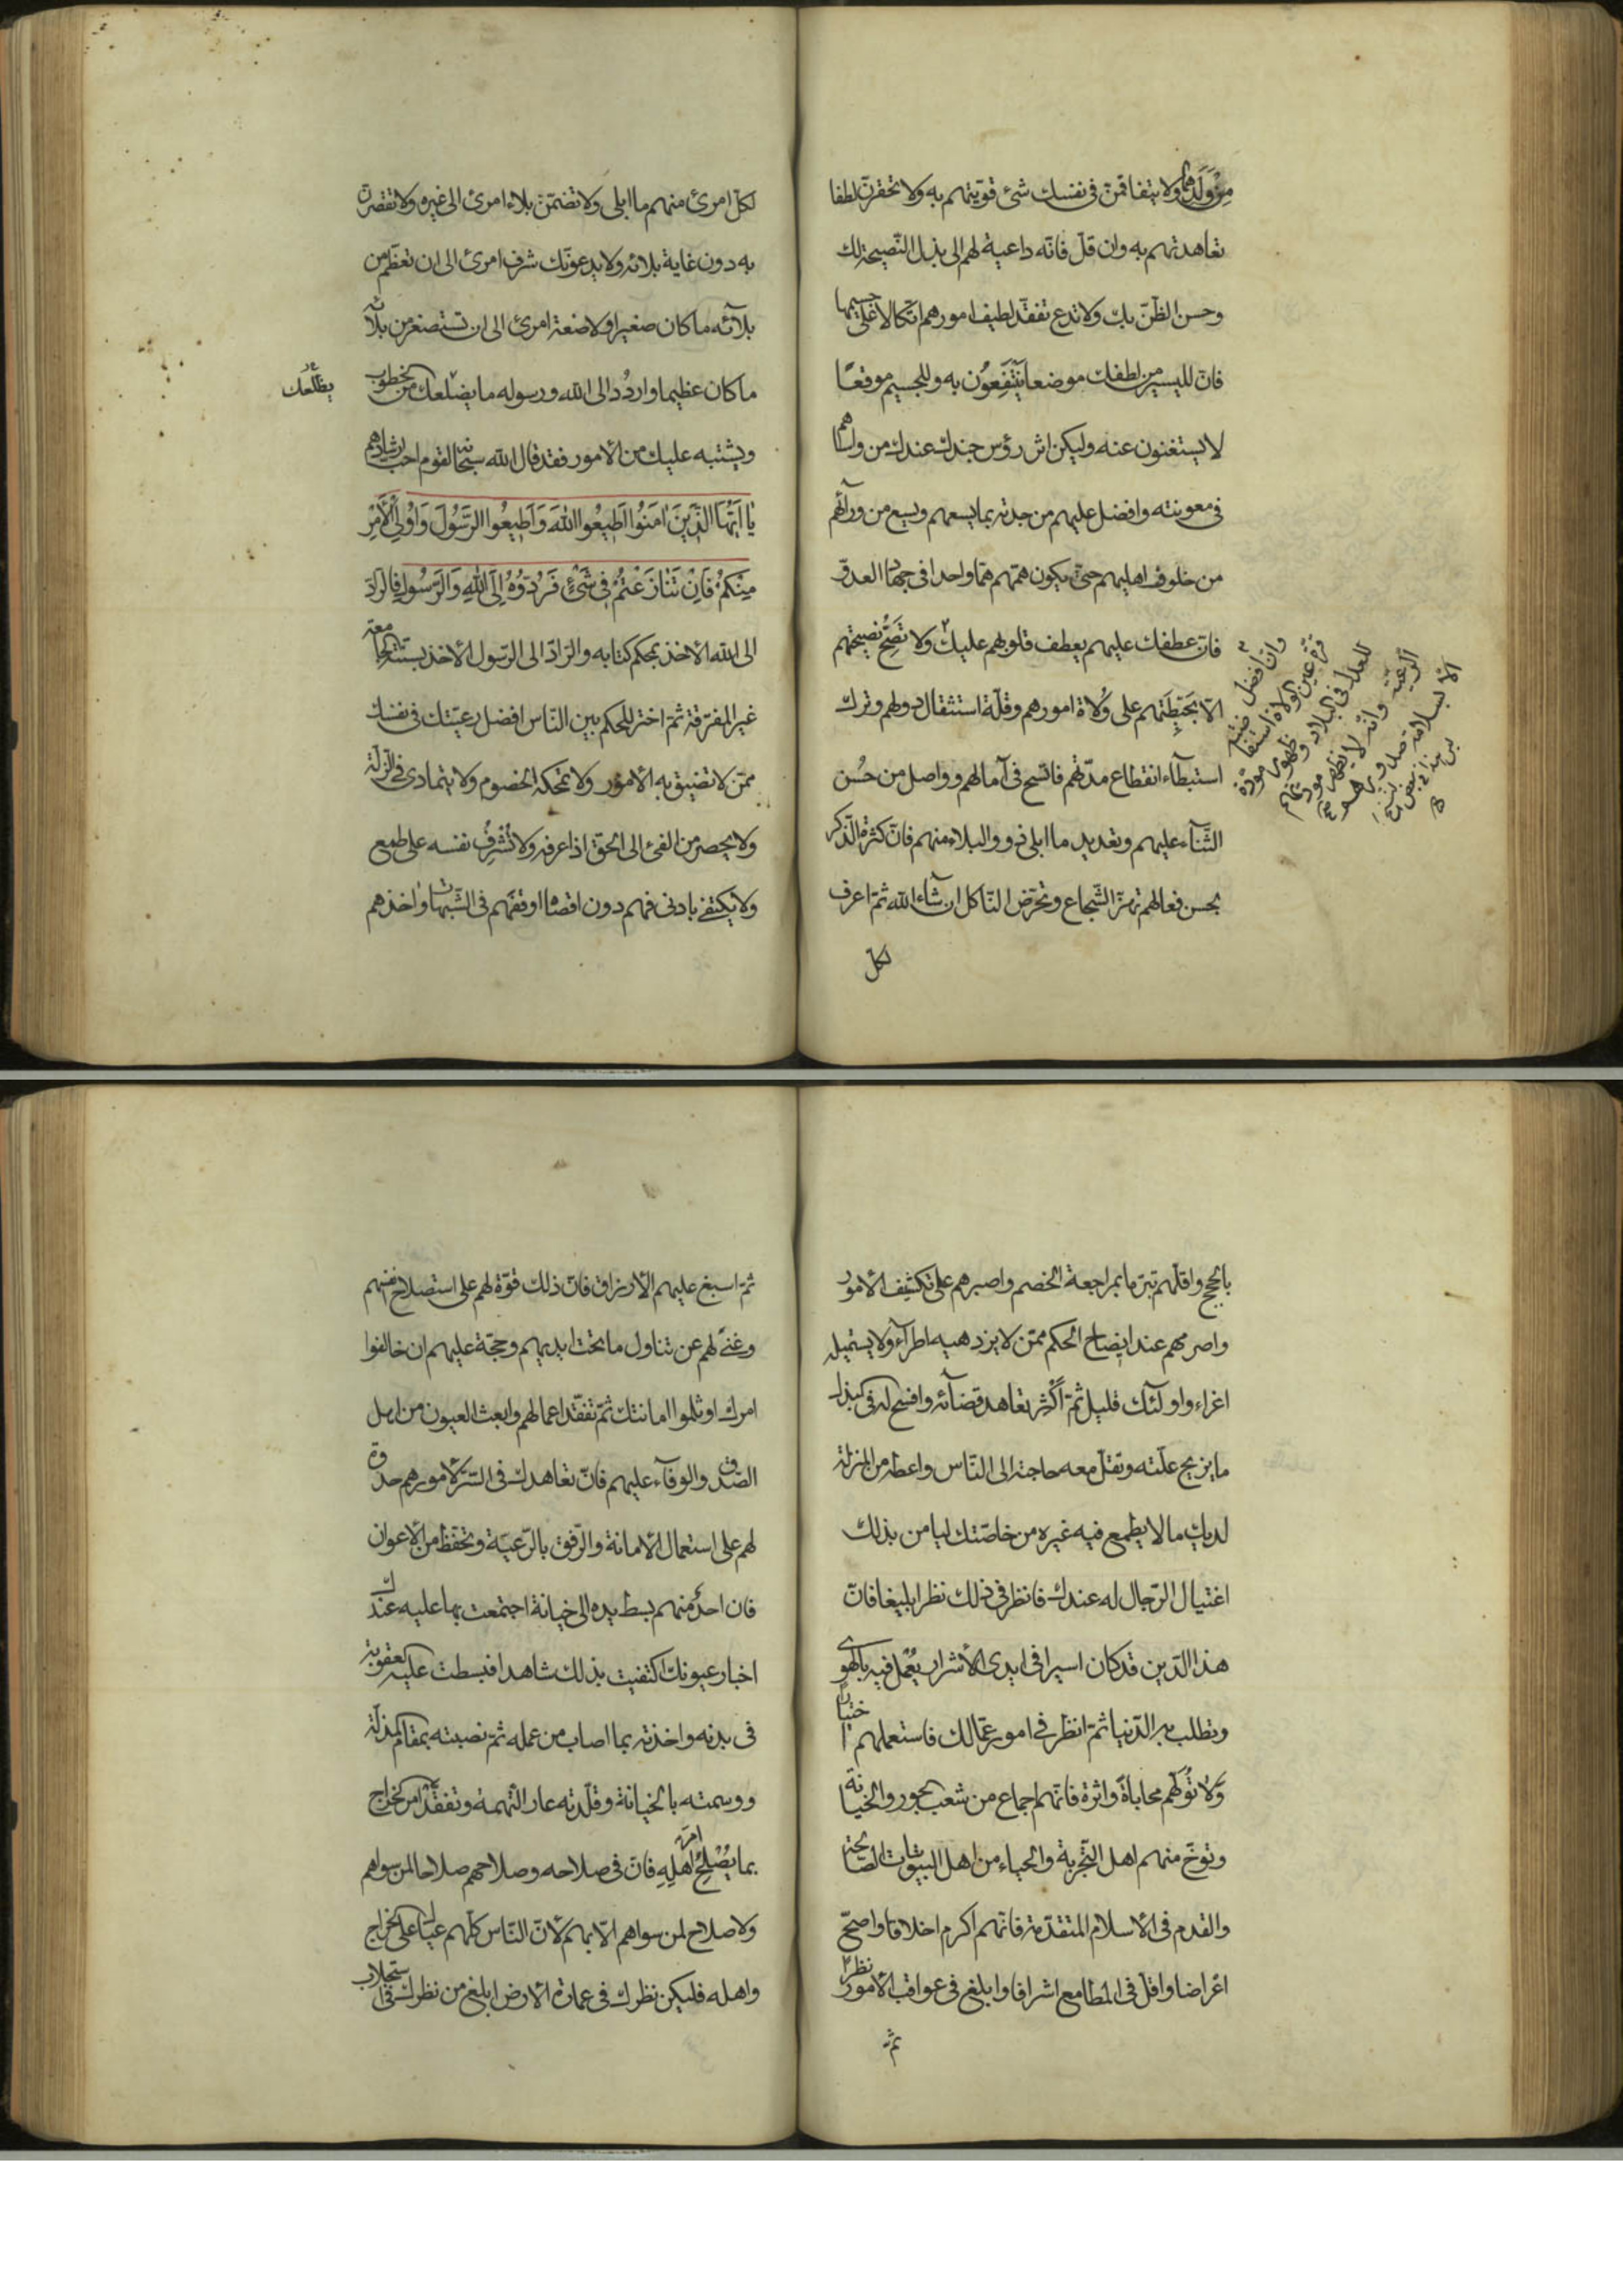 مِنْ وَلَدِهما ولا يتفاقمنّ فى نفسك شئ قوّيتهم به ولا تحقرنّ لطفا
تعاهدتهم به وان قلّ فانّه داعية لهم الى بذل النّصيحة لك
وحسن الظّنّ بك ولا تدع تفقّد لطيف امورهم اتّكالا على جسيمها
فانّ لليسير من لطفك موضعا يَنْتَفِعُون به وللجسيم موقعًا
لا يستغنون عنه وليكن اثر رؤس جندك عندك من واساهم
فى معونته وافضل عليهم من جدته بما يسعهم ويسع من ورآئهم
من خلوف اهليهم حتّى يكون همّهم همّا واحدا فى جهاد العدوّ
فانّ عطفك عليهم يعطف قلوبهم عليك ولا تَصِحُّ نصيحتهم
الّا بحَيْطَتِهم على وُلاة امورهم وقلّة استثقال دولهم وترك
استبطآء انقطاع مدّتهم فافسح فى آمالهم وواصل من حُسْن
الثّنآء عليهم وتعديد ما ابلى ذوو البلاء منهم فانّ كثرة الذّكر
بحسن فعالهم تهزّ الشّجاع وتحرّض النّاكل ان شآء الله ثمّ اعرف
لكلّ
وانّ افضل
قرّة عين الولاة استقامة
العدل فى البلاد وظهور مودّة
الرّعيّة وانّه لا تظهر مودّتهم
الّا بسلامة صدورهم
لكلّ امرئ منهم ما ابلى ولا تضمّنّ بلاء امرئ الى غيره ولا تقصرنّ
به دون غاية بلائه ولا يدعونّك شرف امرئ الى ان تعظّم من
بلآئه ما كان صغيرا ولا ضعة امرئ الى ان تستصغر من بلآئه
ما كان عظيما واردُد الى الله ورسوله ما يضلعك من الخطوب
يظلعك
ويشتبه عليك من الأمور فقد قال الله سبحانه لقوم احبّ ارشادهم
يَا اَيُّهَا الَّذِينَ اٰمَنُوا اَطِيعُوا اللهَ وَاَطِيعُوا الرَّسُولَ وَاُولِى الْأَمْرِ
مِنْكُمْ فَاِنْ تَنَازَعْتُمْ فِى شَئٍ فَرُدُّوهُ اِلَى اللهِ وَالرَّسُولِ فالرّادّ
الى الله الأخذ بمحكم كتابه والرّادّ الى الرّسول الأخذ بسنّته الجامعة
غير المفرّقة ثمّ اختر للحكم بين النّاس افضل رعيّتك فى نفسك
ممّن لا تضيق به الأمور ولا تمحكه الخصوم ولا يتمادى فى الزّلّة
ولا يحصر من الفئ الى الحقّ اذا عرفه ولا تُشْرِفُ نفسه على طمع
ولا يكتفى بادنى فهم دون اقصاه اوقفهم فى الشّبهات واخذهم
بالحجج واقلّهم تبرّما بمراجعة الخصم واصبرهم على تكشّف الأمور
واصرمهم عند ايضاح الحكم ممّن لا يزدهيه اطرآء ولا يستميله
اغراء واولئك قليل ثمّ أكْثِر تعاهد قضآئه وافسح له فى البذل
ما يزيح علّته وتقلّ معه حاجته الى النّاس واعطه من المنزلة
لديك ما لا يطمع فيه غيره من خاصّتك ليامن بذلك
اغتيال الرّجال له عندك فانظر فى ذلك نظرا بليغا فانّ
هذا الدّين قد كان اسيرا فى ايدى الأشرار يُعْمَل فيه بالهوى
وتطلب به الدّنيا ثمّ انظر فى امور عمّالك فاستعملهم اختبارًا
وَلَا تُوَلِّهم محاباةً واثرة فانّهم اجماع من شعب الجور والخيانة
وتوخّ منهم اهل التّجربة والحياء من اهل البيوتات الصّالحة
والقدم فى الأسلام المتقدّمة فانّهم اكرم اخلاقا واصحّ
اعراضا واقلّ فى المطامع اشرافا وابلغ فى عواقب الأمور نظرًا
ثمّ
ثمّ اسبغ عليهم الأرزاق فانّ ذلك قوّة لهم على استصلاح انفسهم
وغنًى لهم عن تناول ما تحت ايديهم وحجّة عليهم ان خالفوا
امرك او ثلموا امانتك ثمّ تفقّد اعمالهم وابعث العيون من اهل
الصّدق والوفآء عليهم فانّ تعاهدك فى السّرّ لأمورهم حدوة
لهم على استعمال الأمانة والرّفق بالرّعيّة وتحفّظ من الأعوان
فان احدٌ منهم بسط يده الى خيانة اجتمعت بها عليه عندك
اخبار عيونك اكتفيت بذلك شاهدا فبسطت عليه العقوبة
فى بدنه واخذته بما اصاب من عمله ثمّ نصبته بمقام المذلّة
ووسمته بالخيانة وقلّدته عار التّهمة وتفقّد امر الخراج
بما يُصْلِحُ اَهْلِهِ فانّ فى صلاحه وصلاحهم صلاحا لمن سواهم
امرَ
ولا صلاح لمن سواهم الّا بهم لأنّ النّاس كلّهم عيال على الخراج
واهله فليكن نظرك فى عمارة الأرض ابلغ من نظرك فى استجلاب